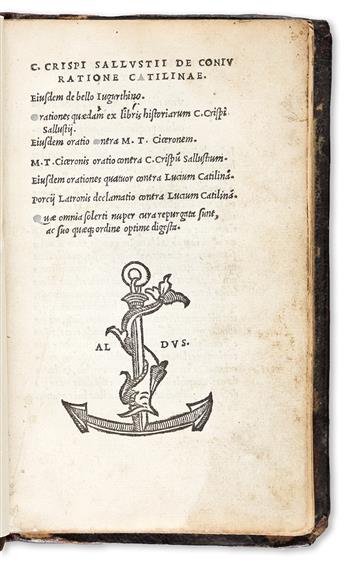 C. CRISPI SALLVSTII DE CONIV
RATIONE CATILINAE.
Eiusdem de bello Iugurthino.
Orationes quædam ex libris historiarum C. Crispi
Sallustij.
Eiusdem oratio contra M. T. Ciceronem.
M. T. Ciceronis oratio contra C. Crispũ Sallustium.
Eiusdem orationes quatuor contra Lucium Catilinã.
Porcij Latronis declamatio contra Lucium Catilinã.
Quæ omnia solerti nuper cura repurgata sunt,
ac suo quæq; ordine optime digesta.
AL DVS.